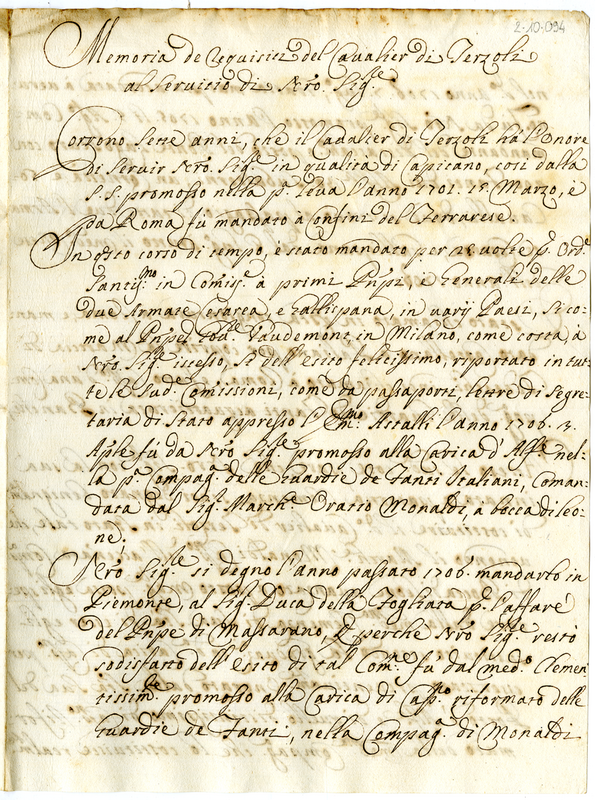 2-10-094
Memoria de Requisiti del Cavalier di Terzoli
al Servicio di Nro. Sig.re
Corrono Sette anni, che il Cavalier di Terzoli ha l'onore
di Servir Nro. Sig.re in qualità di Capitano, così dalla
S.S. promosso nella p.a Leva l'anno 1701. 15. Marzo, e
da Roma fù mandato à Confini del Ferrarese.
In q̃sto corso di tempo, è stato mandato per volte p. Ord.
Santiss.mo in Comiss. à primi Pnpi, è Generali delle
due Armate Cesarea, e Gallispana, in varij Paesi, si co-
me al Pnpe Vaudemont, in Milano, come costa, à
Nro. Sig.re istesso, si dell'esito felicissimo, riportato in tut-
te le Sud.e Comissioni, come da passaporti, lettre di Segre-
taria di Stato appresso l'Em.mo Astalli l'anno 1706. 3.
Aple fù da Nro Sig.re promosso alla Carica d'Alf.re nel-
la p.a Compag. delle Guardie de Fanti Italiani, Coman-
data dal Sig.r March.e Oratio Monaldi, à bocca di leo-
ne;
Nro Sig.re si degno l'anno passato 1706. mandarlo in
Piemonte, al Sig.r Duca della Fogliata p. l'affare
del Pnpe di Massarano, È perche Nro Sig.re restò
sodisfatto dell'esito di tal Com.ne fù dal med.o Clemen
tissim.o promosso alla Carica di Cap.no riformato delle
Guardie de Fanti, nella Compag. di Monaldi